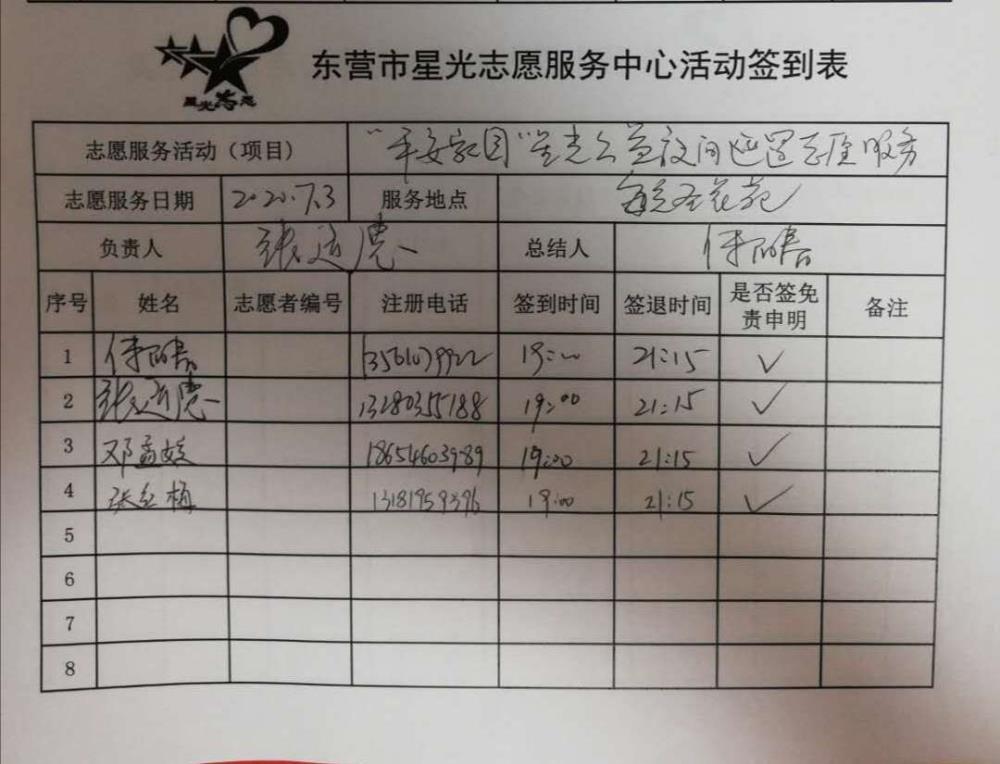 星光志愿
东营市星光志愿服务中心活动签到表
志愿服务活动（项目） “平安家园”星光公益夜间巡逻志愿服务
志愿服务日期 2020.7.3 服务地点
负责人 张连虎 总结人
序号 姓名 志愿者编号 注册电话 签到时间 签退时间 是否签免责申明 备注
1 13561079922 19:00 21:15 ✓
2 张连虎 13280355188 19:00 21:15 ✓
3 邓孟姣 18654603989 19:00 21:15 ✓
4 张红梅 13181959396 19:00 21:15 ✓
5
6
7
8